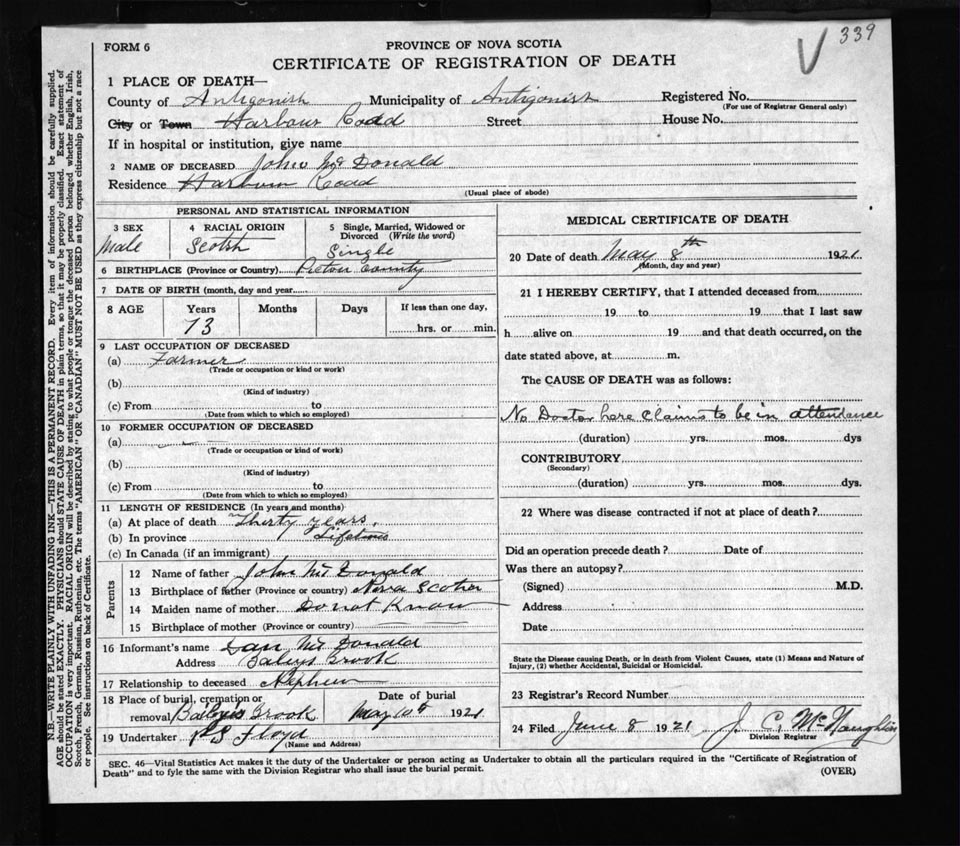 339
V
FORM 6
PROVINCE OF NOVA SCOTIA
CERTIFICATE OF REGISTRATION OF DEATH
1 PLACE OF DEATH—
County of Antigonish Municipality of Antigonish Registered No.
(For use of Registrar General only)
City or Town Harbour Road Street House No.
If in hospital or institution, give name
2 NAME OF DECEASED John McDonald
Residence Harbour Road
(Usual place of abode)
PERSONAL AND STATISTICAL INFORMATION
3 SEX 4 RACIAL ORIGIN 5 Single, Married, Widowed or
Divorced (Write the word)
Male Scotsh Single
6 BIRTHPLACE (Province or Country) Pictou County
7 DATE OF BIRTH (month, day and year
8 AGE Years Months Days If less than one day,
73 hrs. or min.
9 LAST OCCUPATION OF DECEASED
(a) Farmer
(Trade or occupation or kind or work)
(b)
(Kind of industry)
(c) From to
(Date from which to which so employed)
10 FORMER OCCUPATION OF DECEASED
(a)
(Trade or occupation or kind of work)
(b)
(Kind of industry)
(c) From to
(Date from which to which so employed)
11 LENGTH OF RESIDENCE (In years and months)
(a) At place of death Thirty years.
(b) In province Lifetime
(c) In Canada (if an immigrant)
Parents
12 Name of father John McDonald
13 Birthplace of father (Province or country) Nova Scotia
14 Maiden name of mother Do not Know
15 Birthplace of mother (Province or country)
16 Informant's name Dan McDonald
Address Baleys Brook
17 Relationship to deceased Nephew
18 Place of burial, cremation or Date of burial
removal Brook May 10th 1921
19 Undertaker Floyd
(Name and Address)
MEDICAL CERTIFICATE OF DEATH
20 Date of death May 8th 1921
(Month, day and year)
21 I HEREBY CERTIFY, that I attended deceased from
19 to 19 that I last saw
h alive on 19 and that death occurred, on the
date stated above, at m.
The CAUSE OF DEATH was as follows:
No Doctor here claims to be in attendance
(duration) yrs. mos. dys
CONTRIBUTORY
(Secondary)
(duration) yrs. mos. dys.
22 Where was disease contracted if not at place of death?
Did an operation precede death? Date of
Was there an autopsy?
(Signed) M.D.
Address
Date
State the Disease causing Death, or in death from Violent Causes, state (1) Means and Nature of
Injury, (2) whether Accidental, Suicidal or Homicidal.
23 Registrar's Record Number
24 Filed June 8 1921 J. C. McNaughlin
Division Registrar
SEC. 46—Vital Statistics Act makes it the duty of the Undertaker or person acting as Undertaker to obtain all the particulars required in the "Certificate of Registration of
Death" and to fyle the same with the Division Registrar who shall issue the burial permit. (OVER)
N.B.—WRITE PLAINLY WITH UNFADING INK—THIS IS A PERMANENT RECORD. Every item of information should be carefully supplied.
AGE should be stated EXACTLY. PHYSICIANS should STATE CAUSE OF DEATH in plain terms, so that it may be properly classified. Exact statement of
OCCUPATION is very important. RACIAL ORIGIN will be described by stating to what people or tongue the deceased person belonged whether English, Irish,
Scotch, French, German, Russian, Ruthenian, etc. The terms "AMERICAN" OR "CANADIAN" MUST NOT BE USED as they express citizenship but not a race
or people. See instructions on back of Certificate.